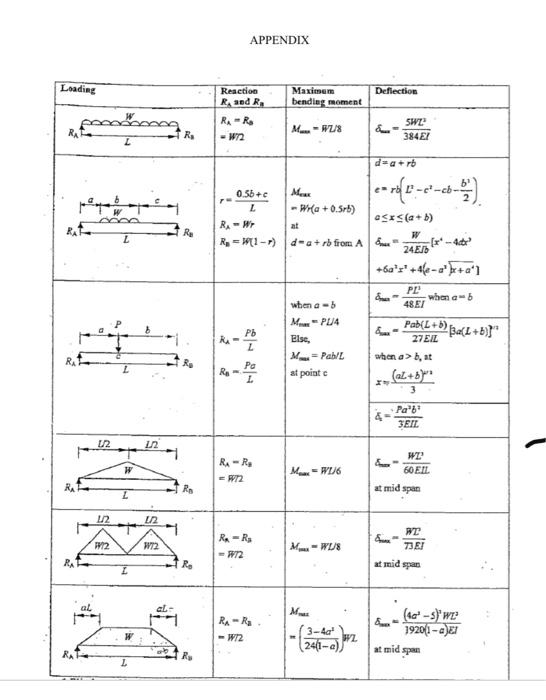 APPENDIX
Loading
Reaction R_A and R_B
Maximum bending moment
Deflection
W
R_A
R_B
L
R_A = R_B
= W/2
M_max = WL/8
δ_max = 5WL³/384EI
a b c
W
R_A
R_B
L
r = (0.5b + c)/L
R_A = Wr
R_B = W(1 − r)
M_max
= Wr(a + 0.5rb)
at
d = a + rb from A
d = a + rb
e = rb(L² − c² − cb − b²/2)
a ≤ x ≤ (a + b)
δ_max = W/24EIb [x⁴ − 4dx³
+6a²x² + 4(e − a³)x + a⁴]
P
a b
c
R_A
R_B
L
R_A = Pb/L
R_B = Pa/L
when a = b
M_max = PL/4
Else,
M_max = Pab/L
at point c
δ_max = PL³/48EI when a = b
δ_max = Pab(L+b)/27EIL [3a(L+b)]^1/2
when a > b, at
x = (aL+b)^1/2/3
δ_c = Pa²b²/3EIL
L/2 L/2
W
R_A
R_B
L
R_A = R_B
= W/2
M_max = WL/6
δ_max = WL³/60EIL
at mid span
L/2 L/2
W/2 W/2
R_A
R_B
L
R_A = R_B
= W/2
M_max = WL/8
δ_max = WL³/73EI
at mid span
aL aL
W
R_A
R_B
L
R_A = R_B
= W/2
M_max
= ((3−4a²)/24(1−a))WL
δ_max = (4a² − 5)²WL³/1920(1−a)EI
at mid span